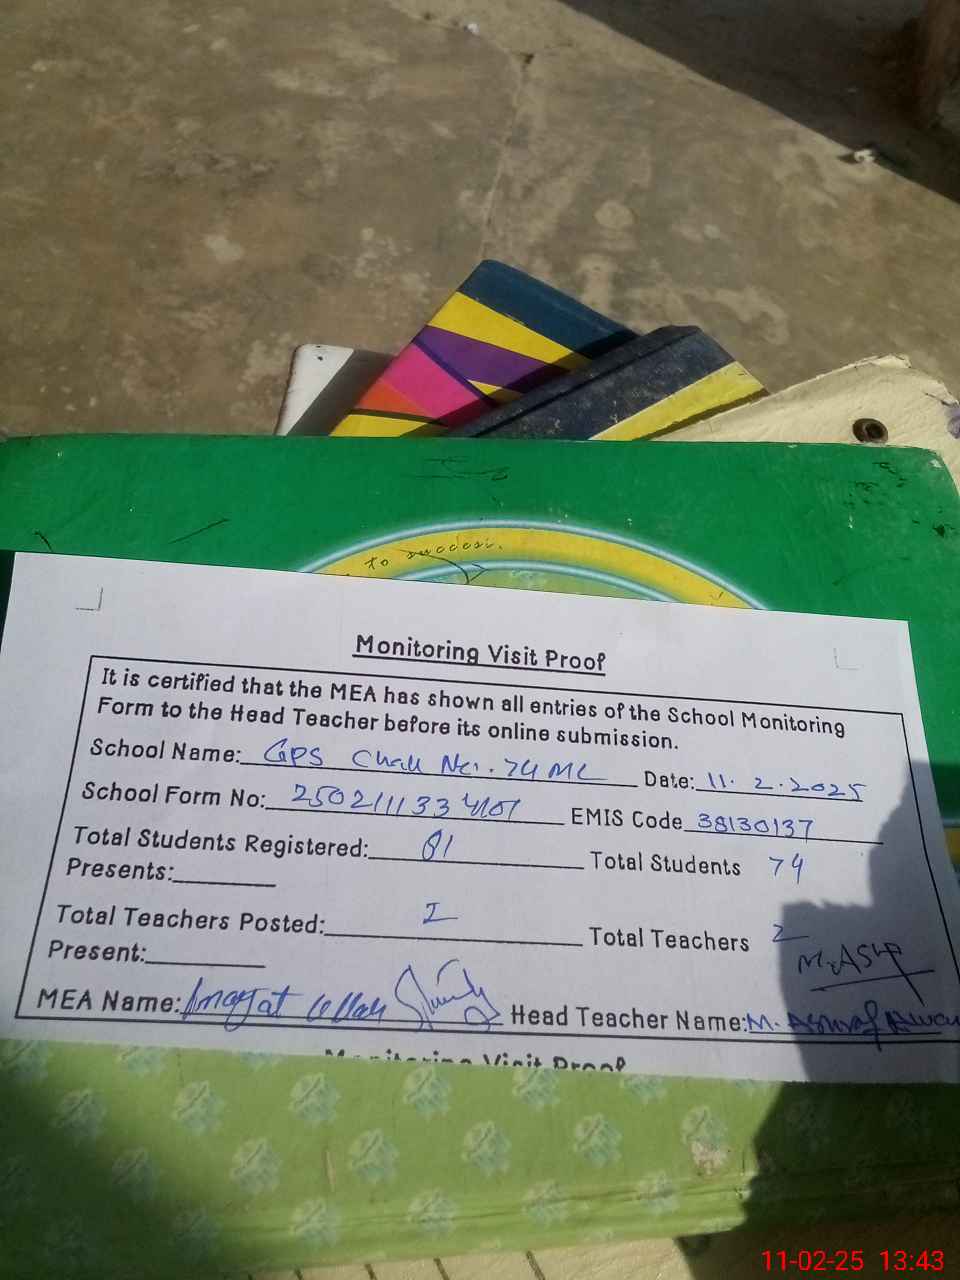 to success.
Monitoring Visit Proof
It is certified that the MEA has shown all entries of the School Monitoring
Form to the Head Teacher before its online submission.
School Name: GPS Chak No. 74 ML Date: 11.2.2025
School Form No: EMIS Code 38130137
Total Students Registered: 81 Total Students 74
Presents:
Total Teachers Posted: 2 Total Teachers 2
Present:
M.ASHF
MEA Name: Inayat Ullah Head Teacher Name: M. Ashraf Awan
Monitoring Visit Proof
11-02-25 13:43